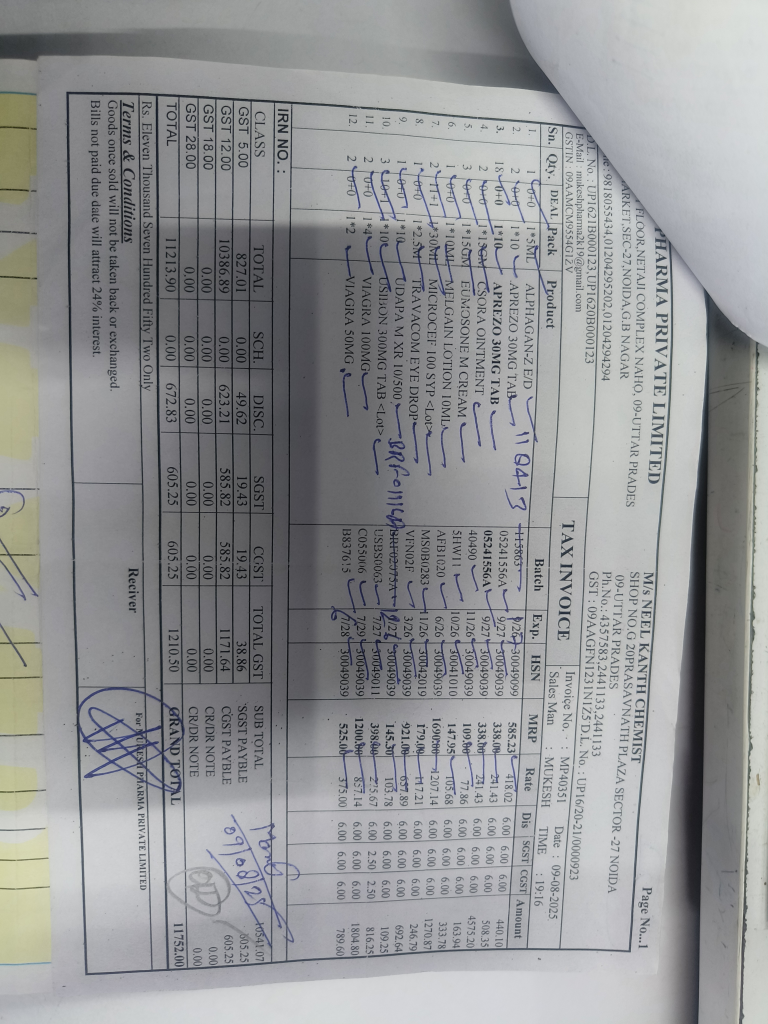 PHARMA PRIVATE LIMITED
FLOOR,NETAJI COMPLEX NAHO, 09-UTTAR PRADES
MARKET,SEC-27,NOIDA,G.B NAGAR
:9818055434,01204295202,01204294294
D.L. No. : UP1621B000123,UP1620B000123
E-Mail : mukeshpharma2k19@gmail.com
GSTIN : 09AAMCM9554G1ZV
Page No...1
M/s NEEL KANTH CHEMIST
SHOP NO.G 20PRASAVNATH PLAZA SECTOR -27 NOIDA
09-UTTAR PRADES
Ph.No.: 4357583,2441133,2441133
GST : 09AAGFN1231N1Z5 D.L. No. : UP16/20-21/0000923
TAX INVOICE
Invoice No. : MP40351 Date : 09-08-2025
Sales Man : MUKESH TIME : 19:16
Sn. Qty. DEAL Pack Product Batch Exp. HSN MRP Rate Dis SGST CGST Amount
1. 1 0+0 1*5ML ALPHAGAN-Z E/D 11Q413 30049099 585.23 418.02 6.00 6.00 6.00 440.10
2. 2 0+0 1*10 APREZO 30MG TAB 05241556A 9/27 30049039 338.00 241.43 6.00 6.00 6.00 508.35
3. 18 0+0 1*10 APREZO 30MG TAB 05241556A 9/27 30049039 338.00 241.43 6.00 6.00 6.00 4575.20
4. 2 0+0 CSORA OINTMENT 40490 11/26 30049039 109.80 77.86 6.00 6.00 6.00 163.94
5. 3 0+0 1*15GM EUMOSONE M CREAM 5HW11 10/26 30041010 147.95 105.68 6.00 6.00 6.00 333.78
6. 1 0+0 1*10ML MELGAIN LOTION 10ML AFB1020 6/26 30049039 1690.00 1207.14 6.00 6.00 6.00 1270.87
7. 2 11+1 1*30ML MICROCEF 100 SYP <Lot> MS0B0283 11/26 30042019 179.00 117.21 6.00 6.00 6.00 246.79
8. 1 0+0 1*2.5M TRAVACOM EYE DROP VFN02F 3/26 30049039 921.00 657.89 6.00 6.00 6.00 692.64
9. 1 0+0 1*10 UDAPA M XR 10/500 BRF01114A 30049039 145.30 103.78 6.00 6.00 6.00 109.25
10. 3 10+1 1*10 USIBON 300MG TAB <Lot> USBS0063 7/27 30049011 398.00 275.67 6.00 2.50 2.50 816.25
11. 2 0+0 1*4 VIAGRA 100MG C055006 7/29 30049039 1200.00 857.14 6.00 6.00 6.00 1804.80
12. 2 0+0 1*2 VIAGRA 50MG B837615 7/28 30049039 525.00 375.00 6.00 6.00 6.00 789.60
IRN NO. :
CLASS TOTAL SCH. DISC. SGST CGST TOTAL GST
GST 5.00 827.01 0.00 49.62 19.43 19.43 38.86
GST 12.00 10386.89 0.00 623.21 585.82 585.82 1171.64
GST 18.00 0.00 0.00 0.00 0.00 0.00 0.00
GST 28.00 0.00 0.00 0.00 0.00 0.00 0.00
TOTAL 11213.90 0.00 672.83 605.25 605.25 1210.50
SUB TOTAL 10541.07
SGST PAYBLE 605.25
CGST PAYBLE 605.25
CR/DR NOTE 0.00
CR/DR NOTE 0.00
GRAND TOTAL 11752.00
09/08/25
Rs. Eleven Thousand Seven Hundred Fifty Two Only
Terms & Conditions
Goods once sold will not be taken back or exchanged.
Bills not paid due date will attract 24% interest.
Reciver
For MUKESH PHARMA PRIVATE LIMITED